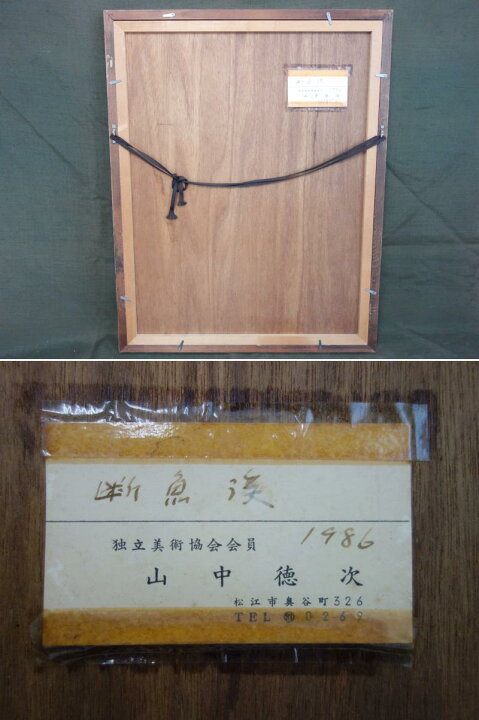 断魚渓
独立美術協会会員 1986
山中徳次
松江市奥谷町326
TEL ㉑0269